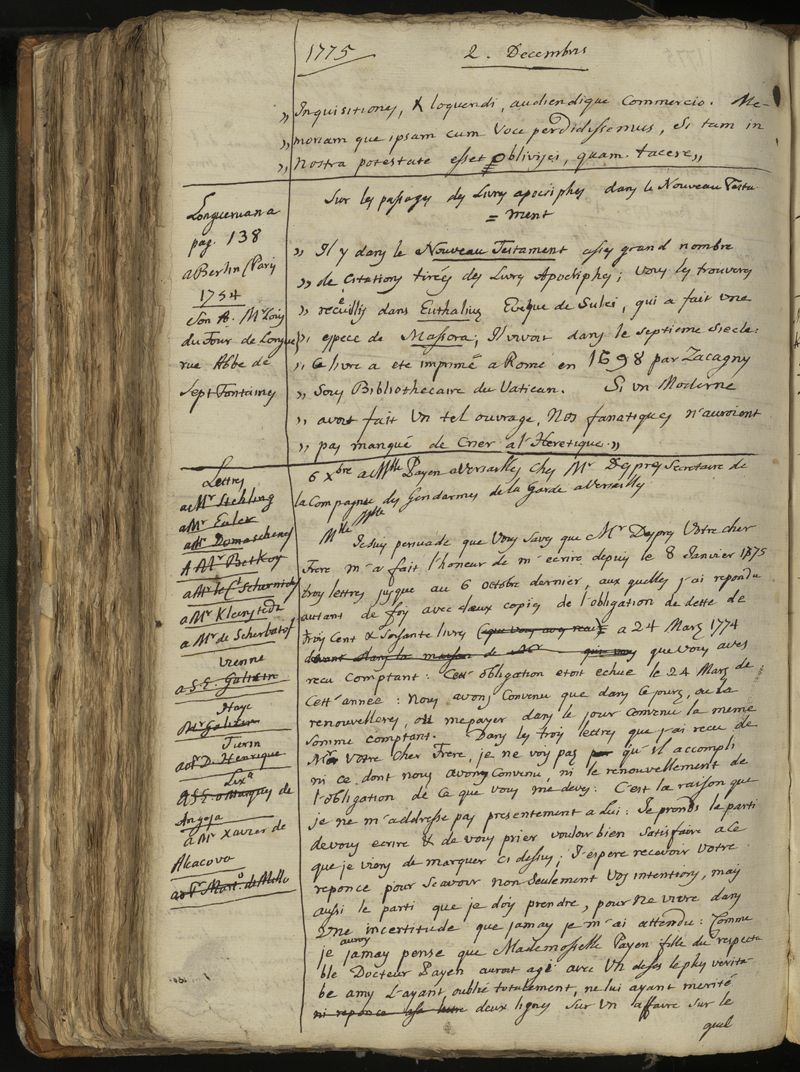 1775
2. Decembris
„ Inquisitiones, & loquendi, audiendique Commercio. Me-
„ moriam que ipsam cum Voce perdidissemus, Si tam in
„ Nostra potestate esset oblivisci, quam tacere„
Longueruana
pag. 138
a Berlin (Paris
1754
Son A. Mr Louis
du Four de Longue
rue Abbe de
Sept Fontaines
Sur les passages des Livres apocriphes dans le Nouveau Testa
= ment
„ Il y dans le Nouveau Testament assés grand nombre
„ de Citations tirées des Livres Apocriphes; Vous les trouverez
„ recueïllis dans Euthalius Evêque de Sulci, qui a fait une
„ espece de Massora; Il vivoit dans le septieme siecle:
„ Ce livre a eté imprimé a Rome en 1698 par Zacagny
„ Sous Bibliothecaire du Vatican. Si un Moderne
„ avoit fait Un tel ouvrage, Nos fanatiques n'auroient
„ pas manqué de Crier a l'Heretique.„
Lettres
a Mr Stehling
a Mr Euler
a Mr Domaschenef
A Mr Betkoy
a Mr le Ct Scharnichef
a Mr Kleinstedt
a Mr de Scherbatof
Vienne
a S. E. Galitzin
Haye
Mr Galitzin
Turin
a D. Henrique
Lixa
A S. E. o Marques de
Angeja
a Mr Xavier de
Alcacova
ao Pe Mart. de Mello
6 Xbre a Mlle Payen a Versailles Ches Mr Desprez Secretaire de
la Compagnie des Gendarmes de la Garde a Versailles
Mlle
Je suis persuadé que Vous savez que Mr Desprez Votre cher
Frere m'a fait l'honeur de m'ecrire depuis le 8 Janvier 1775
trois lettres jusque au 6 octobre dernier, aux quelles j'ai repondu
autant de fois avec deux copies de l'obligation de dette de
trois Cent & soixante livres (que vous avez recu) a 24 Mars 1774
devant dans la maison de Mr que vous avez
recu Comptant: Cett' obligation etoit echue le 24 Mars de
Cett' année: Nous avons Convenu que dans Ce jours, ou la
renouvelleres, ou me payer dans le jour Convenu la meme
somme comptant. Dans les trois lettres que j'ai recu de
Mr Votre Cher Frere, je ne vois pas qu'il accompli
ni ce dont nous avons Convenu, ni le renouvellement de
l'obligation de Ce que vous me devez: C'est la raison que
je ne m'addresse pas presentement a Lui: Je prends le parti
de vous ecrire & de vous prier vouloir bien Satisfaire a Ce
que je viens de marquer ci dessus; J'espere recevoir Votre
reponce pour Scavoir non Seulement Vos intentions, mais
aussi le parti que je dois prendre, pour ne vivre dans
Une incertitude que jamais je m'ai attendu: Comme
je aurois jamais pensé que Mademoiselle Payen fille du respecta
ble Docteur Payen auroit agi avec Un de ses le plus verita
be amy L'ayant oublié totalement, ne lui ayant merité
ni reponce a sa lettre deux lignes sur Un affaire Sur le
quel